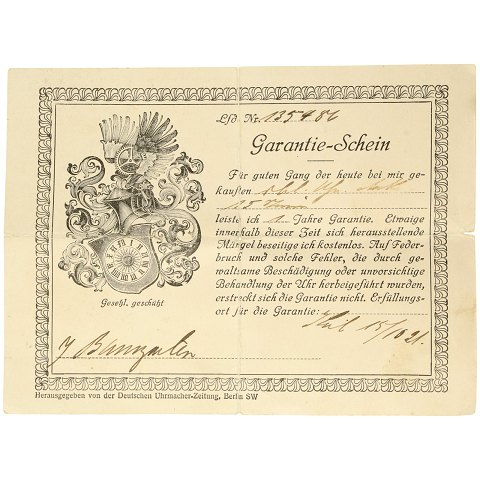 Lfd. Nr. 135486
Garantie-Schein
Für guten Gang der heute bei mir ge-
kauften
25
leiste ich 1 Jahre Garantie. Etwaige
innerhalb dieser Zeit sich herausstellende
Mängel beseitige ich kostenlos. Auf Feder-
bruch und solche Fehler, die durch ge-
waltsame Beschädigung oder unvorsichtige
Behandlung der Uhr herbeigeführt wurden,
erstreckt sich die Garantie nicht. Erfüllungs-
ort für die Garantie:
15/10 21.
Gesetzl. geschützt
J Baumgarten
Herausgegeben von der Deutschen Uhrmacher-Zeitung, Berlin SW